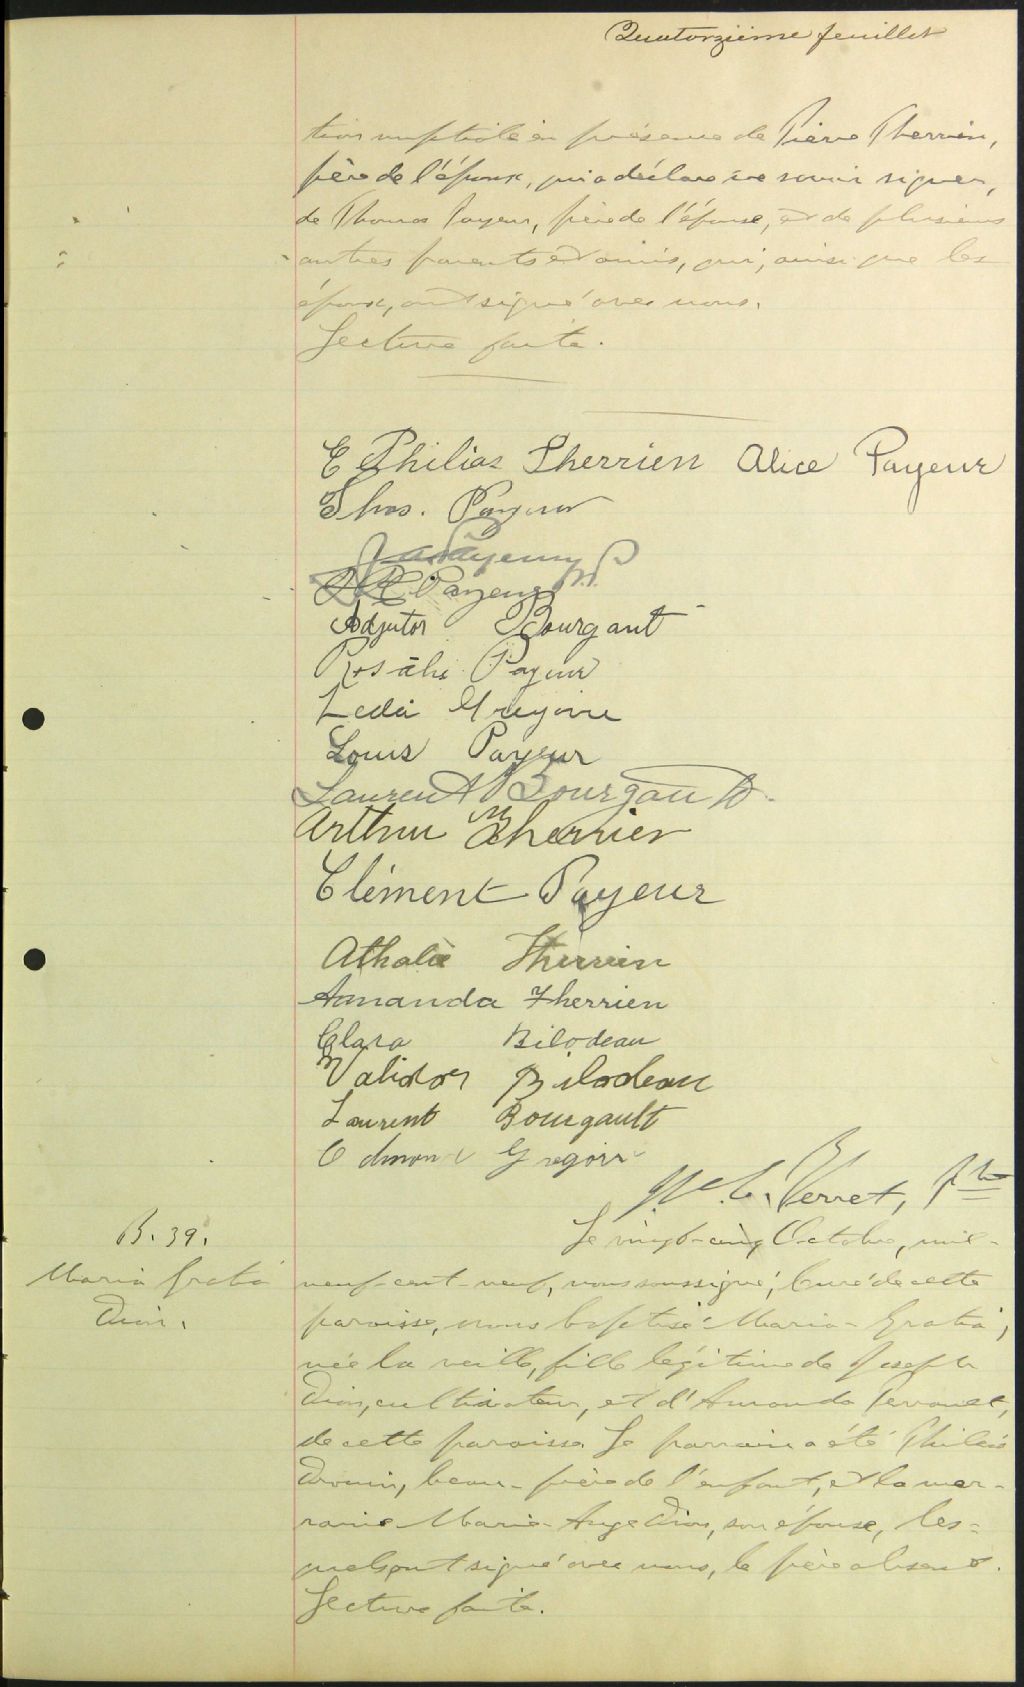 Quatorzième feuillet
tion nuptiale en présence de Pierre Therrien,
père de l'époux, qui a déclaré ne savoir signer,
de Thomas Payeur, père de l'épouse, et de plusieurs
autres parents et amis, qui, ainsi que les
époux, ont signé avec nous.
Lecture faite.
E Philias Therrien Alice Payeur
Thos. Payeur
Payeur
Payeur
Adjutor Bourgault
Rosalie Payeur
Leda Gregoire
Louis Payeur
Laurent Bourgault
Arthur Therrien
Clément Payeur
Athalie Therrien
Amanda Therrien
Clara Bilodeau
Validor Bilodeau
Laurent Bourgault
Odmond Gregoire
Verret, ptre
B. 39.
Maria Gratia
Dion.
Le vingt-cinq Octobre, mil-
neuf-cent-neuf, nous soussigné, Curé de cette
paroisse, avons baptisé Maria-Gratia,
née la veille, fille légitime de Joseph
Dion, cultivateur, et d'Amanda
de cette paroisse. Le parrain a été Philias
Drouin, beau-frère de l'enfant, et la mar-
raine Marie-Ange Dion, son épouse, les-
quels ont signé avec nous, le père absent.
Lecture faite.